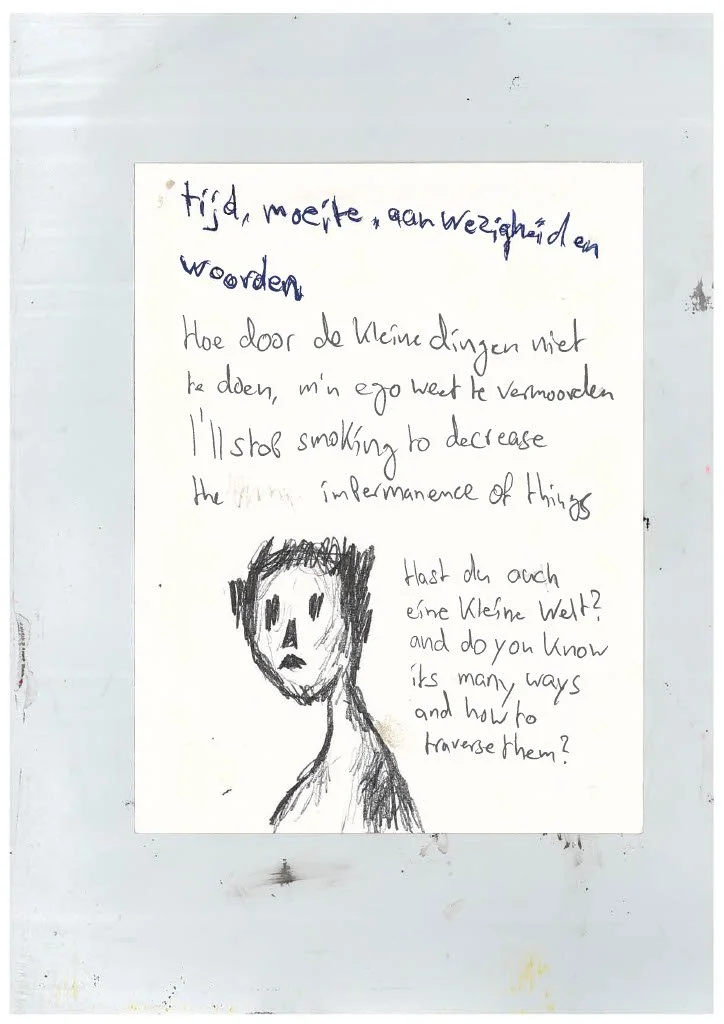 tijd, moeite, aanwezigheid en
woorden
Hoe door de kleine dingen niet
te doen, m'n ego weet te vermoorden
I'll stop smoking to decrease
the impermanence of things
Hast du auch
eine kleine Welt?
and do you know
its many ways
and how to
traverse them?